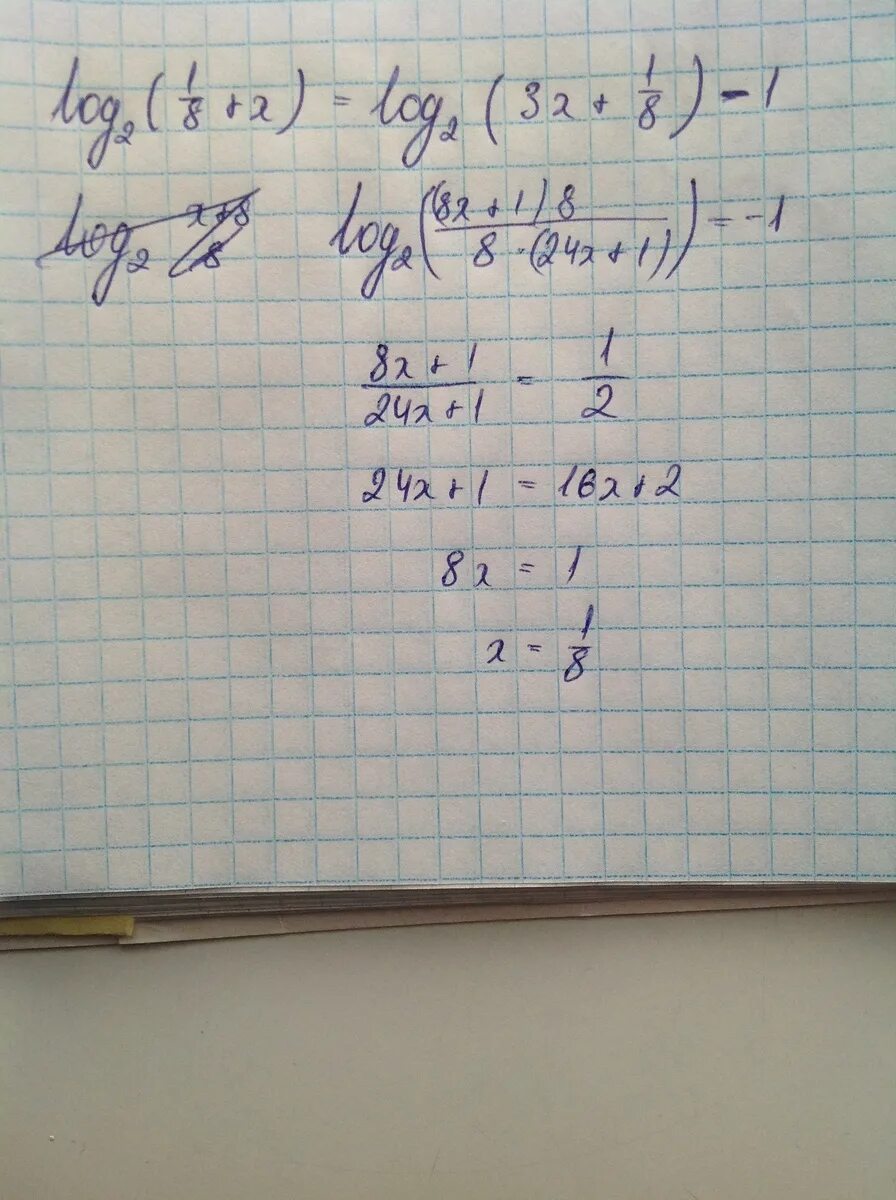 log₂(1/8 + x) = log₂(3x + 1/8) - 1
log₂ (x+8)/8
log₂((8x + 1)8 / 8·(24x + 1)) = -1
(8x + 1)/(24x + 1) = 1/2
24x + 1 = 16x + 2
8x = 1
x = 1/8